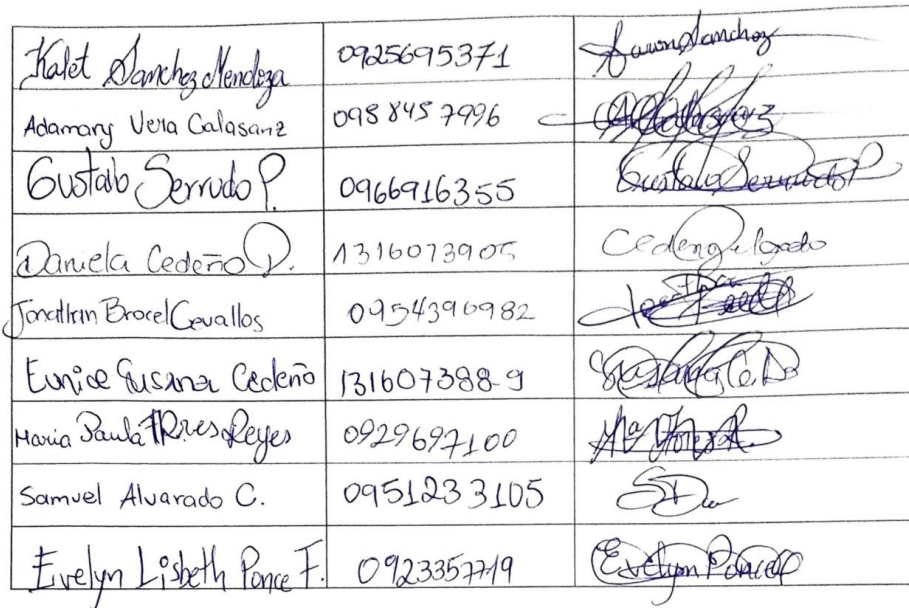 Kalet Sanchez Mendoza 0925695371
Adamary Vera Calasanz 0958457996
Gustabo Serrudo P. 0966916355 Gustabo Serrudo P
Daniela Cedeño D. 1316073905
Jonathan Brocel Cevallos 0954396982
Eunice Susana Cedeño 131607388-9
Maria Paula Flores Reyes 0929697100
Samuel Alvarado C. 0951233105
Evelyn Lisbeth Ponce F. 0923357719 Evelyn Ponce